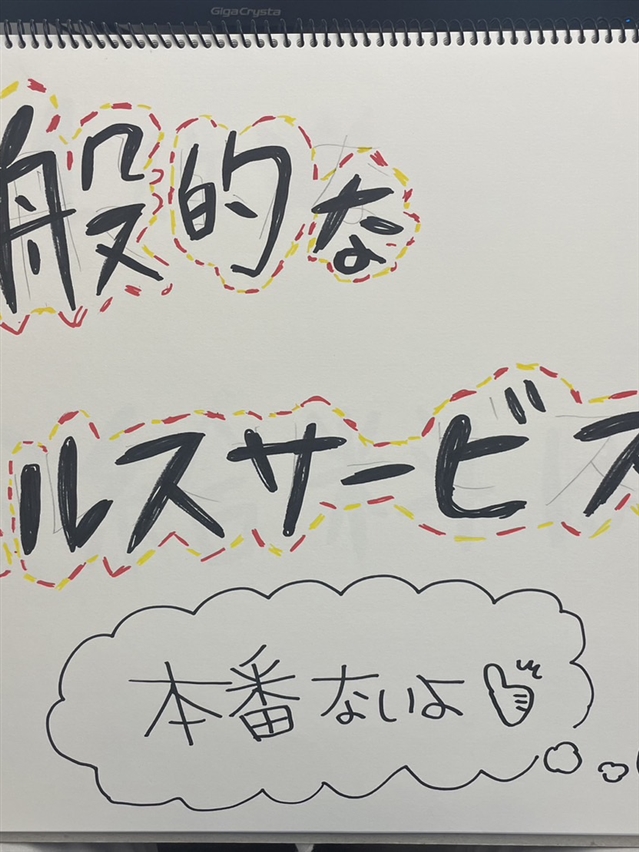 GigaCrysta
般的な
ルスサービス
本番ないよ